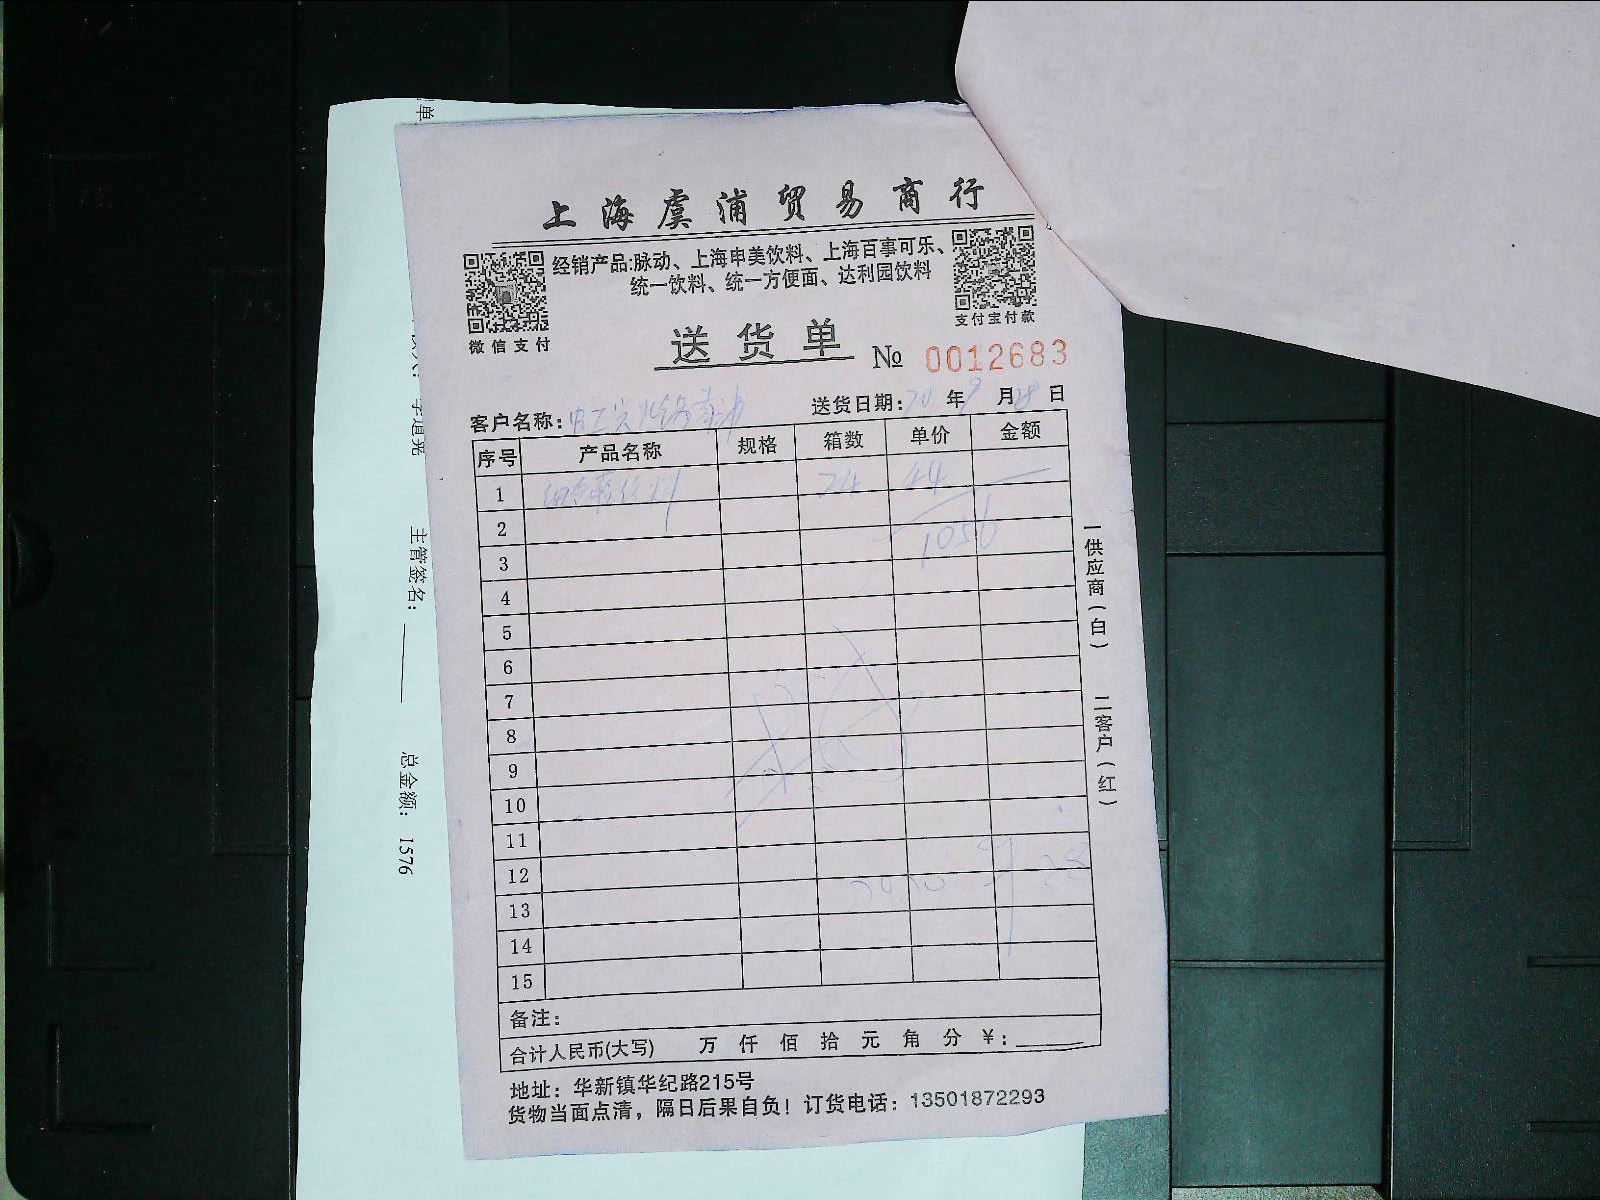 上海虞浦贸易商行
经销产品:脉动、上海申美饮料、上海百事可乐、
统一饮料、统一方便面、达利园饮料
微信支付
支付宝付款
送货单 № 0012683
客户名称: 送货日期: 20 年 9 月 28 日
序号 产品名称 规格 箱数 单价 金额
1 饮料 24 44
2
1056
3
4
5
6
7
8
9
10
11
12
2020 9 28
13
14
15
备注:
合计人民币(大写) 万 仟 佰 拾 元 角 分 ¥:
地址: 华新镇华纪路215号
货物当面点清，隔日后果自负! 订货电话: 13501872293
一供应商(白) 二客户(红)
单
主管签名:
总金额: 1576